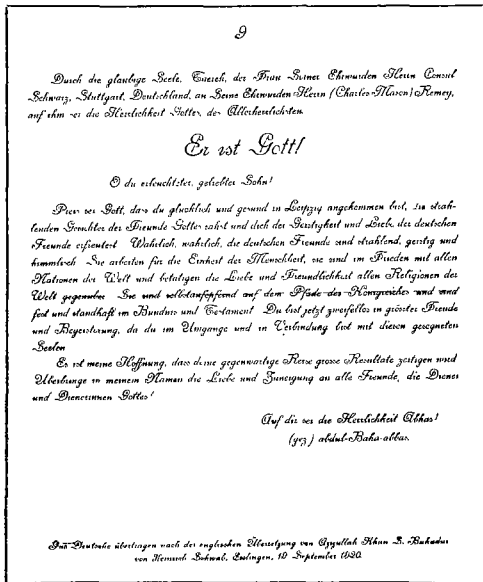 9
Durch die gläubige Seele, Tuerech, der Frau Seiner Ehrwürden Herrn Consul
Schwarz, Stuttgart, Deutschland, an Seine Ehrwürden Herrn (Charles Mason) Remey,
auf ihm sei die Herrlichkeit Gottes, des Allerherrlichsten.
Er ist Gott!
O du erleuchteter, geliebter Sohn!
Preis sei Gott, dass du glücklich und gesund in Leipzig angekommen bist, die strah-
lenden Gesichter der Freunde Gottes sahst und dich der Geistigkeit und Liebe der deutschen
Freunde erfreutest Wahrlich, wahrlich, die deutschen Freunde sind strahlend, geistig und
himmlisch Sie arbeiten für die Einheit der Menschheit, sie sind im Frieden mit allen
Nationen der Welt und betätigen die Liebe und Freundlichkeit allen Religionen der
Welt gegenüber Sie sind selbstaufopfernd auf dem Pfade des Königreiches und sind
fest und standhaft im Bündnis und Testament Du bist jetzt zweifellos in grösster Freude
und Begeisterung, da du im Umgange und in Verbindung bist mit diesen gesegneten
Seelen
Es ist meine Hoffnung, dass deine gegenwärtige Reise grosse Resultate zeitigen wird
Überbringe in meinem Namen die Liebe und Zuneigung an alle Freunde, die Diener
und Dienerinnen Gottes!
Auf dir sei die Herrlichkeit Abhas!
(gez) abdul-Baha-abbas.
Ins Deutsche übertragen nach der englischen Übersetzung von Azizullah Khan S. Bahadur
von Heinrich Schwab, Esslingen, 10 September 1920.